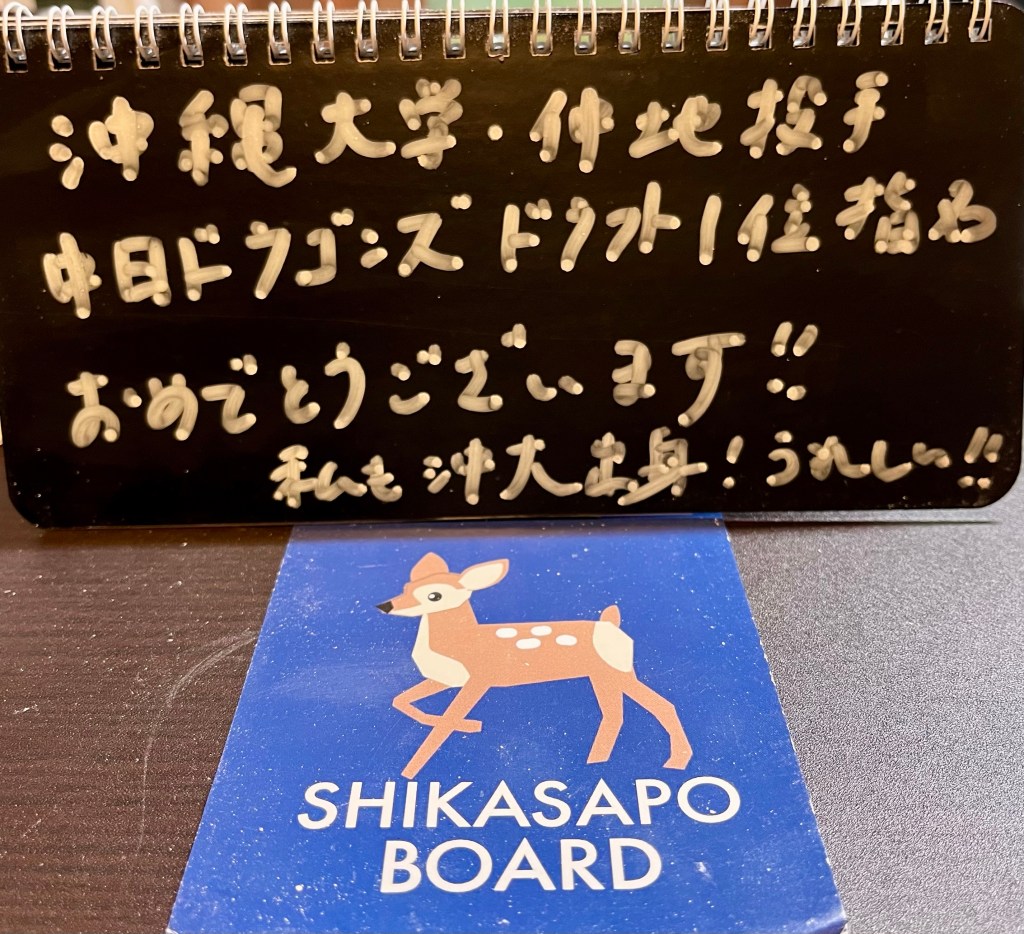 沖縄大学・仲地投手
中日ドラゴンズ ドラフト1位指名
おめでとうございます!!
私も沖大出身!うれしい!!
SHIKASAPO
BOARD